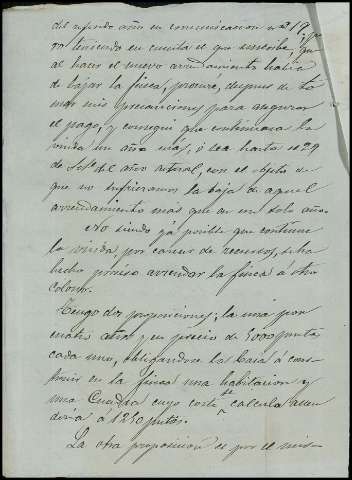 del mismo año en comunicacion nº 19; pe
ro teniendo en cuenta el que suscribe, que
al hacer el nuevo arrendamiento habia
de bajar la finca, procuré, despues de to
mar mis precauciones para asegurar
el pago, y consegui que continuara la
viuda un año más, ó sea hasta el 29
de Sete. del año actual, con el objeto de
que no sufrieramos la baja de aquel
arrendamiento más que en un solo año.
No siendo yá posible que continúe
la viuda por carecer de recursos, se ha
hecho preciso arrendar la finca á otro
colono.
Tengo dos proposiciones; la una por
cuatro años y en precio de 5000 puntas
cada uno, obligandose la casa á cons
truir en la finca una habitacion y
una Cuadra cuyo coste se calcula ascen
derá á 1250 puntas.
La otra proposicion es por el mis-